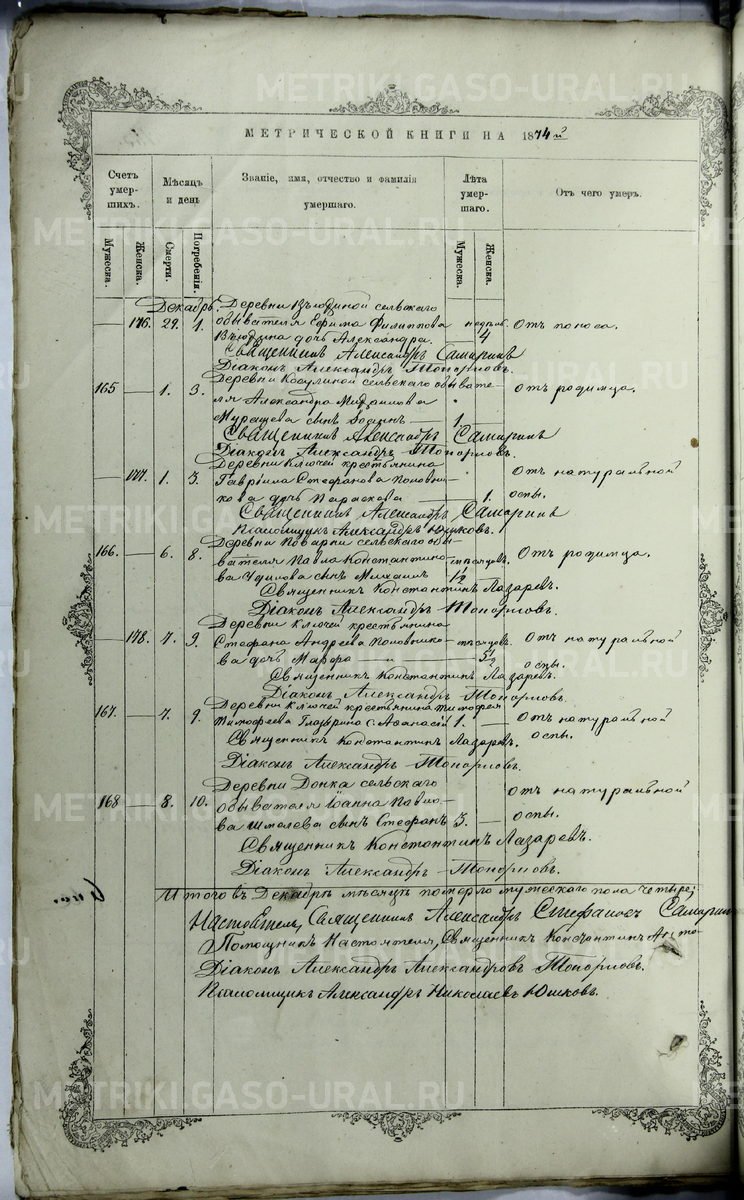 МЕТРИЧЕСКОЙ КНИГИ НА 1874й
Счетъ умершихъ.
Мѣсяцъ и день
Званіе, имя, отчество и фамилія умершаго.
Лѣта умершаго.
Отъ чего умеръ.
Мужеска.
Женска.
Смерти.
Погребенія.
Мужеска.
Женска.
Декабрь. Деревни Вьюхиной сельскаго
— 176. 29. 1. обывателя Ефима Филиппова недѣль отъ поноса.
дочь Александра. 4
Священникъ Александръ Самаринъ
Діаконъ Александръ Топорковъ.
Деревни Косулиной сельскаго обывате-
165 — 1. 3. ля Александра отъ родимца.
сынъ — 1.
Священникъ Александръ Самаринъ
Діаконъ Александръ Топорковъ.
Деревни Ключей крестьянина
— 177. 1. 3. Гавріила Стефанова Половни- Отъ натуральной
кова дочь Параскева — 1. оспы.
Священникъ Александръ Самаринъ
Псаломщикъ Александръ Юшковъ.
Деревни сельскаго обы-
166. — 6. 8. вателя Павла Константино- мѣсяцевъ. Отъ родимца.
ва сынъ Михаилъ 1½
Священникъ Константинъ Лазаревъ.
Діаконъ Александръ Топорковъ.
Деревни Ключей крестьянина
— 178. 7. 9. Стефана Андреева Половнико- мѣсяцевъ. Отъ натуральной
ва дочь 5½ оспы.
Священникъ Константинъ Лазаревъ.
Діаконъ Александръ Топорковъ.
Деревни Ключей крестьянина Тимофея
167. — 7. 9. Тимофеева Глазырина с. Афанасій 1. — Отъ натуральной
Священникъ Константинъ Лазаревъ. оспы.
Діаконъ Александръ Топорковъ.
Деревни сельскаго
168 — 8. 10. обывателя Іоанна Павло- отъ натуральной
ва Шмелева сынъ Стефанъ 3. — оспы.
Священникъ Константинъ Лазаревъ.
Діаконъ Александръ Топорковъ.
Итого въ Декабрѣ мѣсяцѣ померло мужескаго пола четыре,
Настоятель, Священникъ Александръ Стефановъ Самаринъ
Помощникъ Настоятеля, Священникъ Константинъ
Діаконъ Александръ Александровъ Топорковъ.
Псаломщикъ Александръ Николаевъ Юшковъ.
METRIKI.GASO-URAL.RU